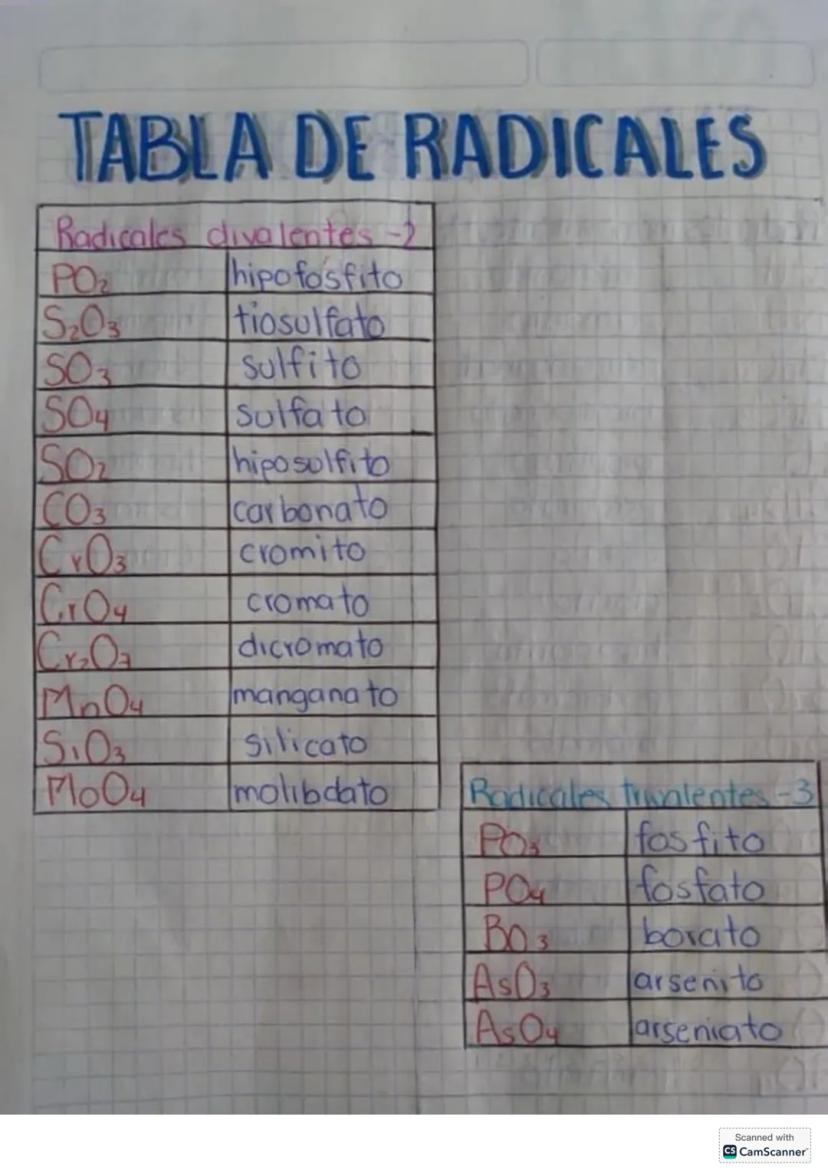 TABLA DE RADICALES
Radicales divalentes -2
PO₂ hipofosfito
S₂O₃ tiosulfato
SO₃ sulfito
SO₄ sulfato
SO₂ hiposulfito
CO₃ carbonato
CrO₃ cromito
CrO₄ cromato
Cr₂O₇ dicromato
MnO₄ manganato
SiO₃ silicato
MoO₄ molibdato
Radicales trivalentes -3
PO₃ fosfito
PO₄ fosfato
BO₃ borato
AsO₃ arsenito
AsO₄ arseniato
Scanned with
CS CamScanner